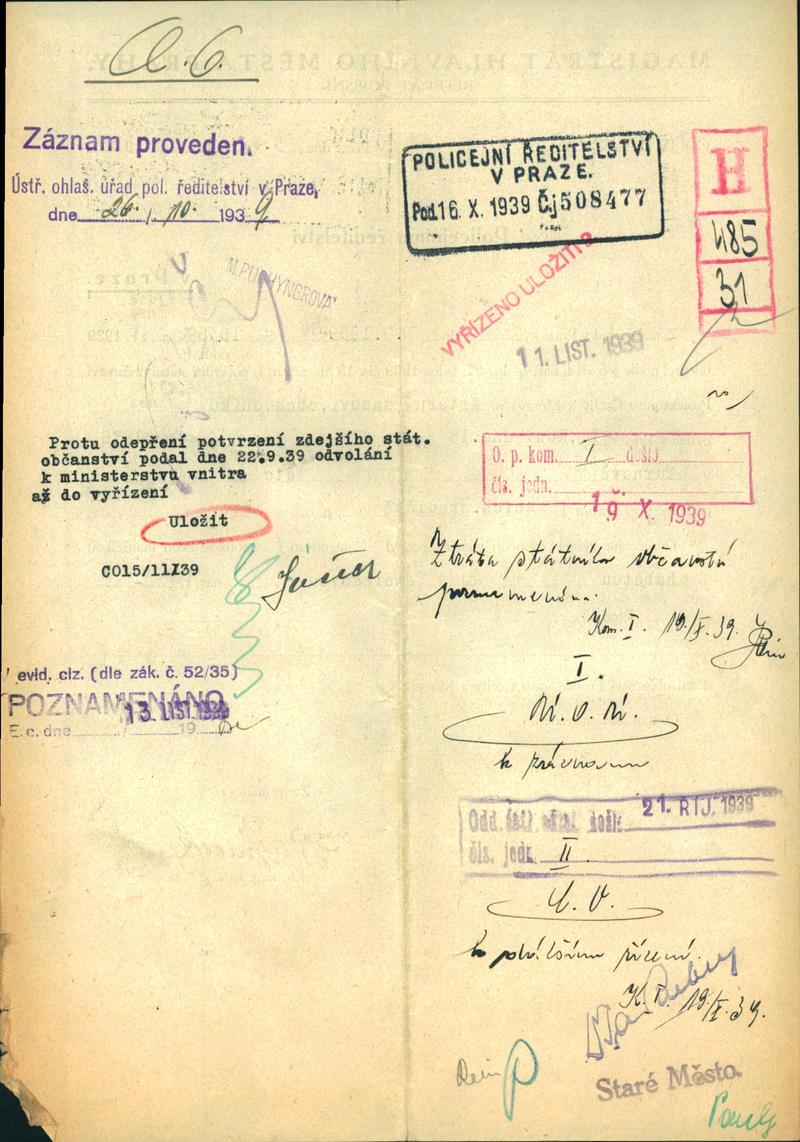 Záznam proveden.
Ústř. ohlaš. úřad pol. ředitelství v Praze,
dne 26/10. 1939
M.PUCHYNGROVÁ
POLICEJNÍ ŘEDITELSTVÍ
V PRAZE.
Pod. 16. X. 1939 Čj 508477
H
485
31
VYŘÍZENO ULOŽITI
11. LIST. 1939
Protu odepření potvrzení zdejšího stát.
občanství podal dne 22.9.39 odvolání
k ministerstvu vnitra
až do vyřízení
Uložit
CO15/11X39
evid. ciz. (dle zák. č. 52/35)
POZNAMENÁNO
13. LIST. 1939
E. c. dne 19
O. p. kom. I došlo
čís. jedn.
19. X. 1939
Ztráta státního občanství
poznamenána.
Kom. I. 19/X. 39.
I.
k
Odd. došlo 21. ŘÍJ. 1939
čís. jedn.
II.
k dalšímu řízení.
K. I. 19/X. 39.
Staré Město.